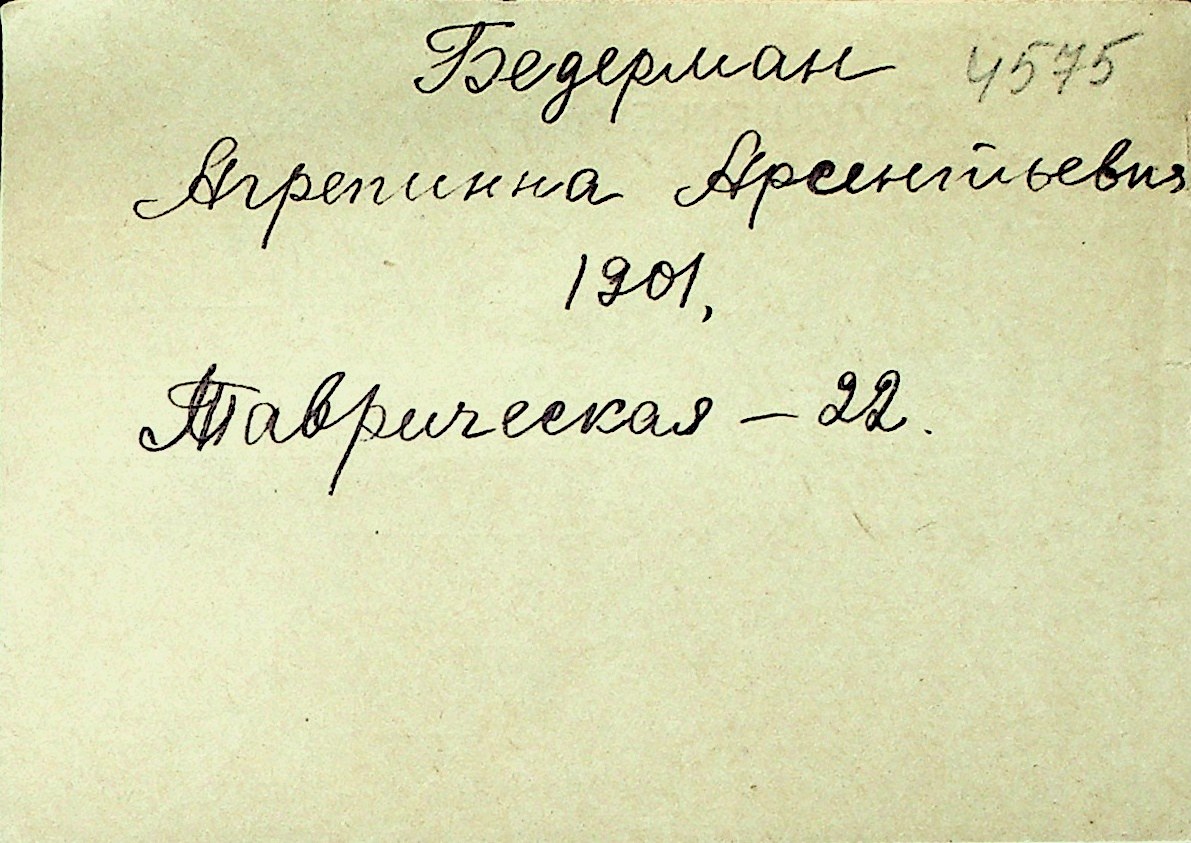 Бедерман 4575
Агрепинна Арсентьевна
1901,
Таврическая - 22.